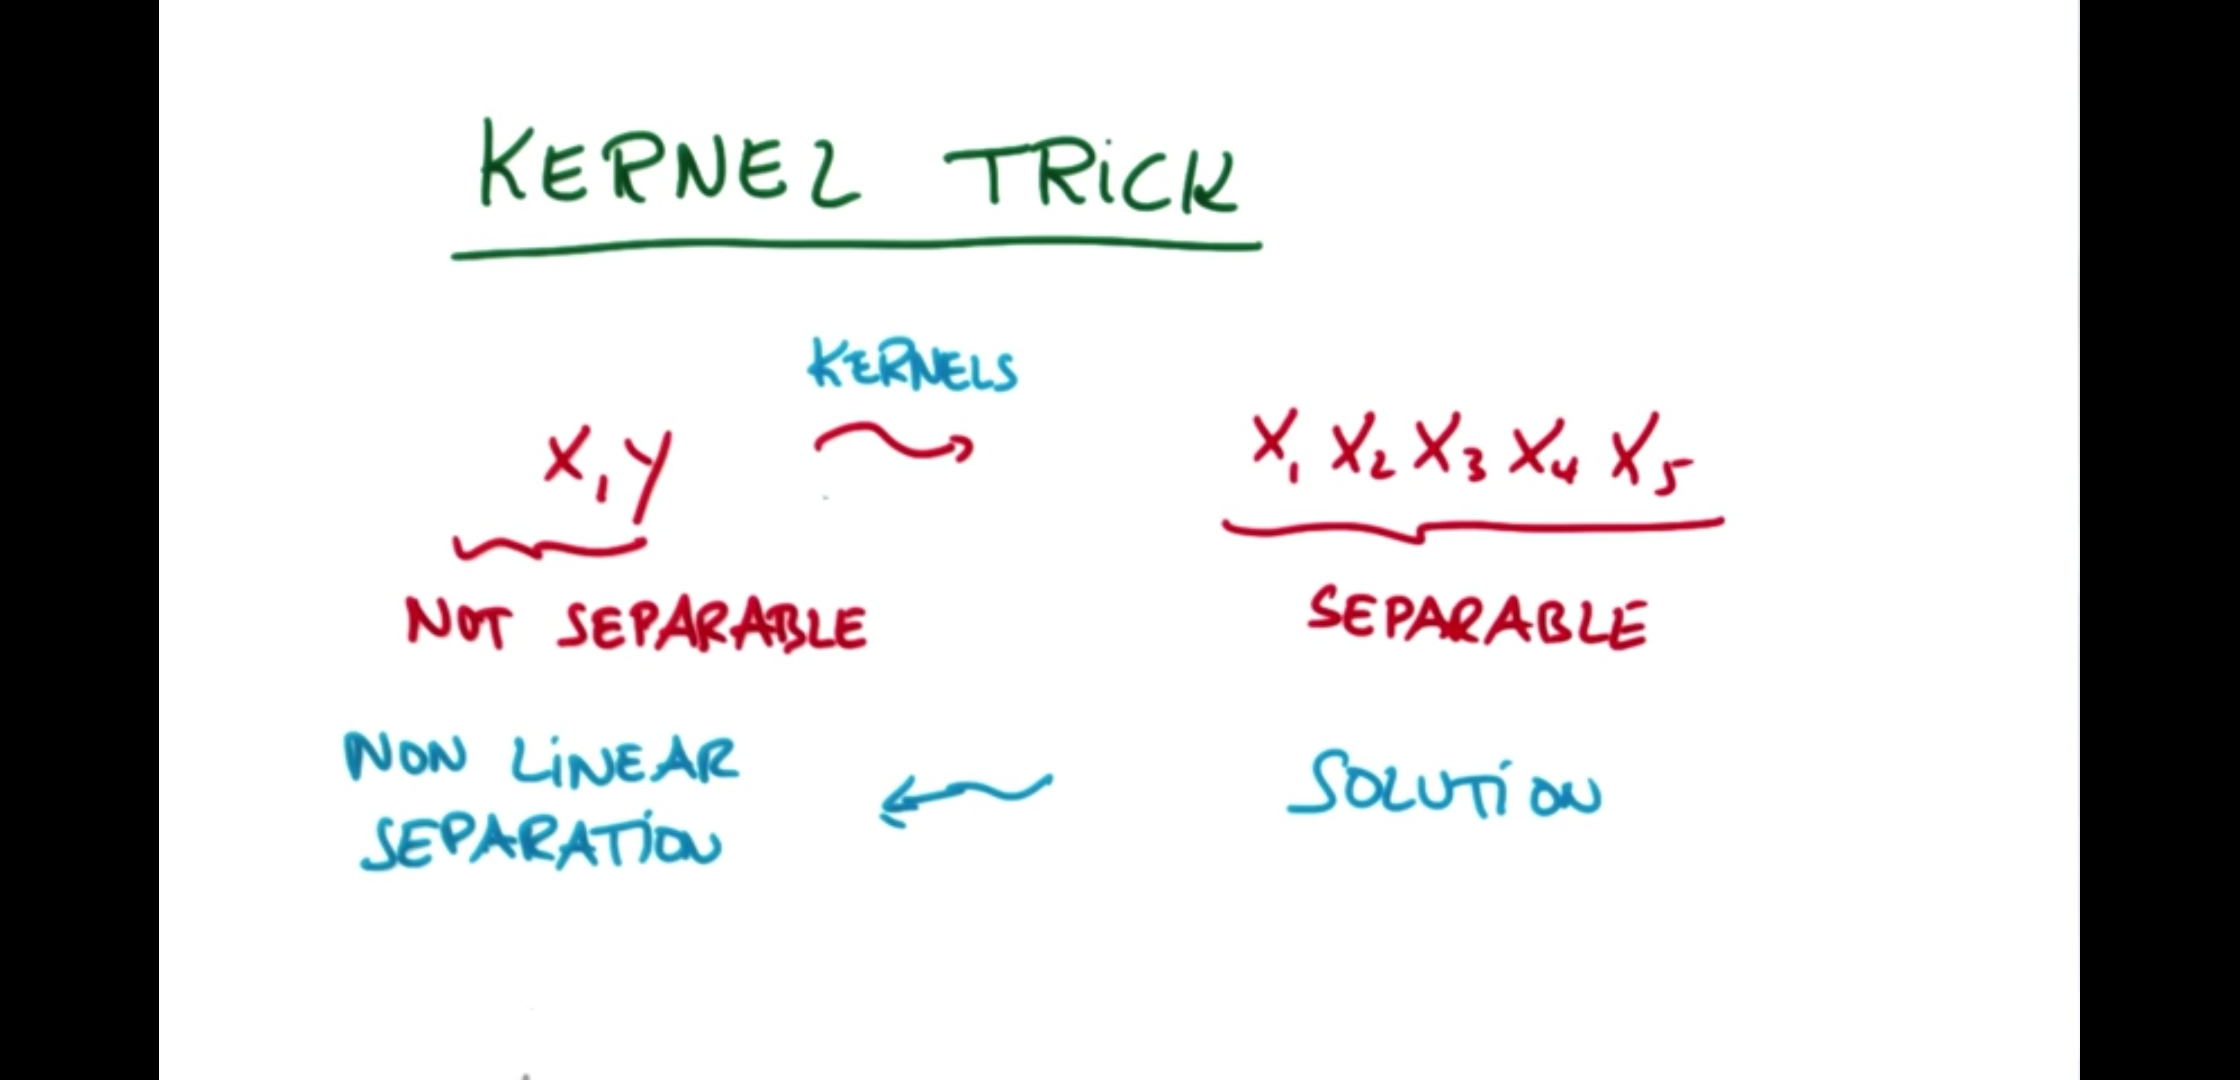 KERNEL TRICK
KERNELS
X, Y
X1 X2 X3 X4 X5
NOT SEPARABLE
SEPARABLE
NON LINEAR
SEPARATION
SOLUTION